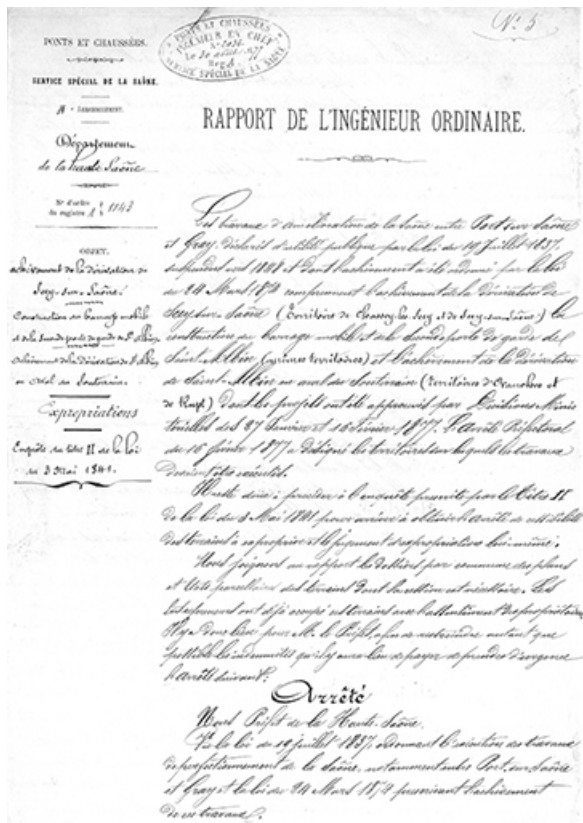 N° 5
PONTS ET CHAUSSÉES
INGÉNIEUR EN CHEF
SERVICE SPÉCIAL DE LA SAÔNE
PONTS ET CHAUSSÉES.
SERVICE SPÉCIAL DE LA SAÔNE.
ARRONDISSEMENT.
Département
de la Haute Saône
N° d'ordre
du registre A 1143
OBJET.
achèvement de la dérivation de
Scey-sur-Saône.
Construction du barrage mobile
et de la grande porte de garde de St Albin
achèvement de la dérivation de St Albin
en aval du Souterrain.
Expropriations
Enquête du titre II de la loi
du 3 Mai 1841.
RAPPORT DE L'INGÉNIEUR ORDINAIRE.
Les travaux d'amélioration de la Saône entre Port-sur-Saône
et Gray, déclarés d'utilité publique par la loi du 19 Juillet 1837,
suspendus vers 1848 et dont l'achèvement a été ordonné par la loi
du 24 Mars 1874 comprennent l'achèvement de la dérivation de
Scey-sur-Saône (Territoire de Chassey-les-Scey et de Scey-sur-Saône) la
construction du barrage mobile et de la grande porte de garde de
Saint-Albin (mêmes territoires) et l'achèvement de la dérivation
de Saint-Albin en aval du Souterrain (territoires d'Ovanches et
de Rupt) dont les projets ont été approuvés par Décisions Minis
térielles des 27 Février et 15 Février 1877. L'arrêté Préfectoral
du 16 février 1877 a désigné les territoires sur lesquels les travaux
doivent être exécutés.
Il reste donc à procéder à l'enquête prescrite par le titre II
de la loi du 3 Mai 1841 pour arriver à obtenir l'arrêté de cessibilité
des terrains à exproprier et le jugement d'expropriation lui-même.
Nous joignons au rapport les dossiers par commune des plans
et états parcellaires des terrains dont la cession est nécessaire. Les
entrepreneurs ont déjà occupé ces terrains avec l'assentiment des propriétaires
Il y a donc lieu pour M. le Préfet, afin de restreindre autant que
possible les indemnités qu'il y aura lieu de payer de prendre d'urgence
l'arrêté suivant:
Arrêté
Nous Préfet de la Haute Saône.
Vu la loi du 19 juillet 1837, ordonnant l'exécution des travaux
de perfectionnement de la Saône, notamment entre Port-sur-Saône
et Gray et la loi du 24 Mars 1874 prescrivant l'achèvement
de ces travaux.